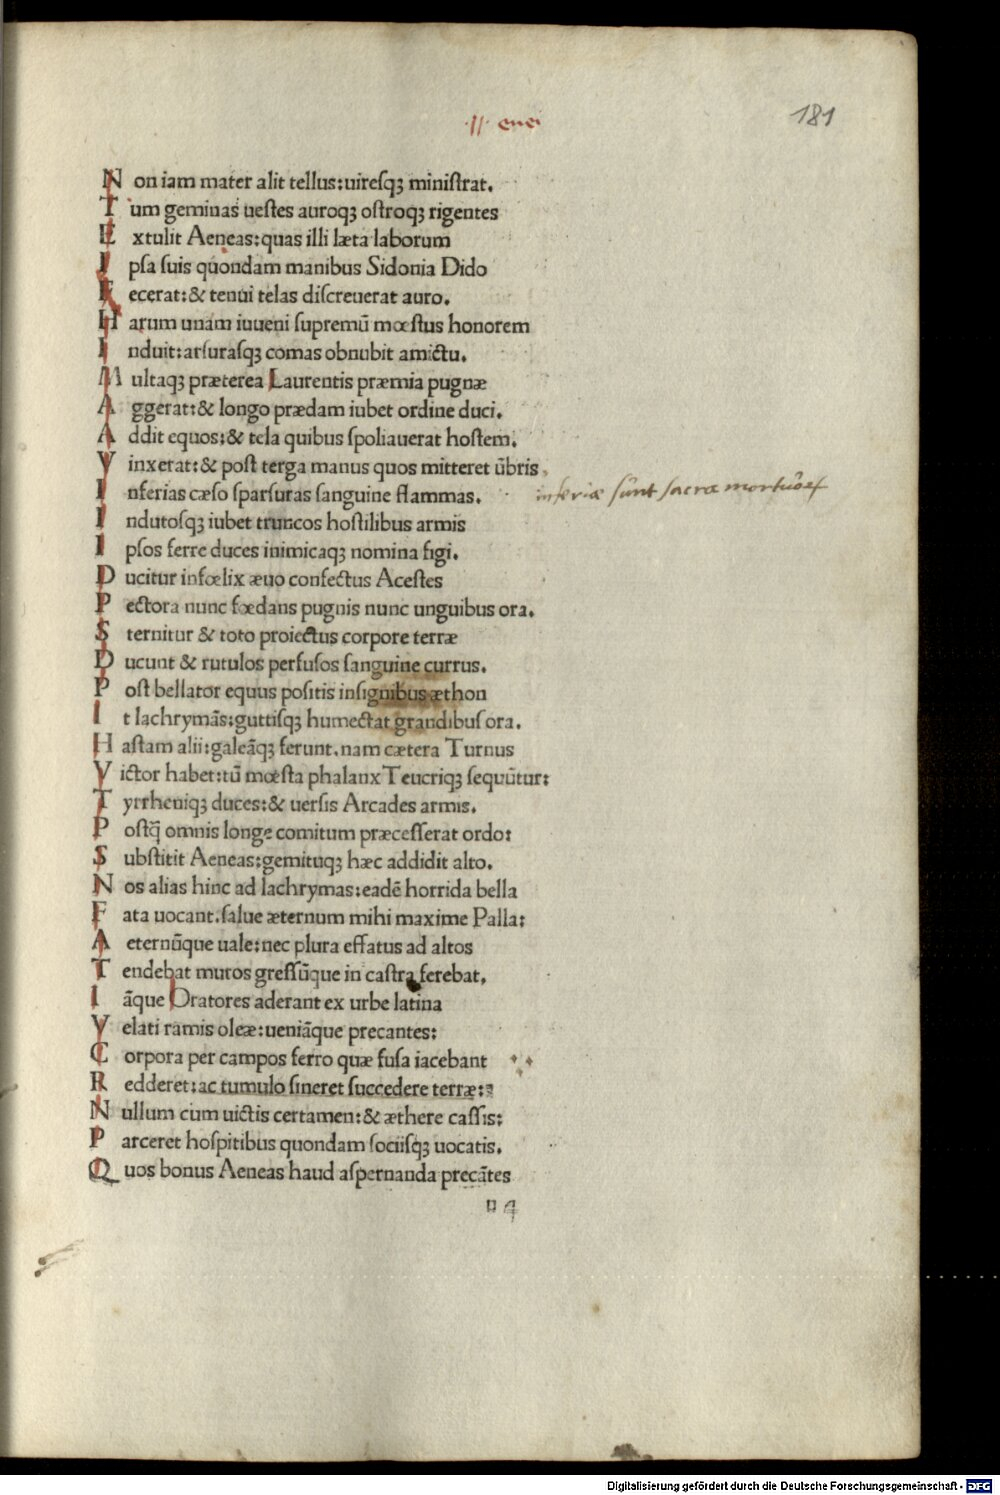 ·11· enei
181
N on iam mater alit tellus:uiresqꝫ ministrat.
T um geminas uestes auroqꝫ ostroqꝫ rigentes
E xtulit Aeneas:quas illi læta laborum
I psa suis quondam manibus Sidonia Dido
F ecerat:& tenui telas discreuerat auro.
H arum unam iuueni supremū mœstus honorem
I nduit:arsurasqꝫ comas obnubit amictu.
M ultaqꝫ præterea Laurentis præmia pugnæ
A ggerat:& longo prædam iubet ordine duci.
A ddit equos:& tela quibus spoliauerat hostem.
V inxerat:& post terga manus quos mitteret ūbris
I nferias cæso sparsuras sanguine flammas.
inferiæ sunt sacra mortuoꝝ
I ndutosqꝫ iubet truncos hostilibus armis
I psos ferre duces inimicaqꝫ nomina figi.
D ucitur infœlix æuo confectus Acestes
P ectora nunc fœdans pugnis nunc unguibus ora.
S ternitur & toto proiectus corpore terræ
D ucunt & rutulos perfusos sanguine currus.
P ost bellator equus positis insignibus æthon
I t lachrymās:guttisqꝫ humectat grandibus ora.
H astam alii:galeāqꝫ ferunt.nam cætera Turnus
V ictor habet:tū mœsta phalanx Teucriqꝫ sequūtur:
T yrrheniqꝫ duces:& uersis Arcades armis.
P ostq̄ omnis longe comitum præcesserat ordo:
S ubstitit Aeneas:gemituqꝫ hæc addidit alto.
N os alias hinc ad lachrymas:eadē horrida bella
F ata uocant.salue æternum mihi maxime Palla:
A eternūque uale:nec plura effatus ad altos
T endebat muros gressūque in castra ferebat.
I āque Oratores aderant ex urbe latina
V elati ramis oleæ:ueniāque precantes:
C orpora per campos ferro quæ fusa iacebant
R edderet:ac tumulo sineret succedere terræ:
N ullum cum uictis certamen:& æthere cassis:
P arceret hospitibus quondam sociisqꝫ uocatis.
Q uos bonus Aeneas haud aspernanda precātes
Digitalisierung gefördert durch die Deutsche Forschungsgemeinschaft - DFG